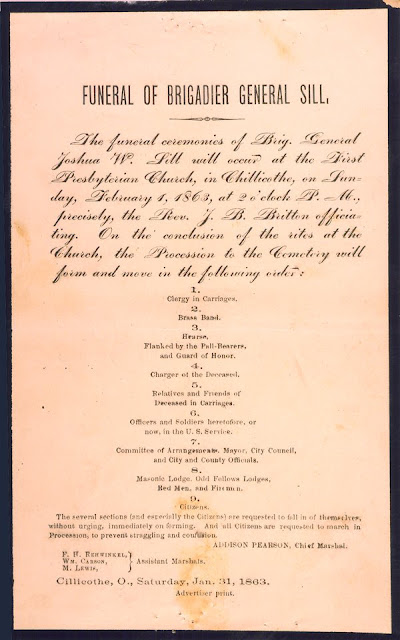 FUNERAL OF BRIGADIER GENERAL SILL.
The funeral ceremonies of Brig. General
Joshua W. Sill will occur at the First
Presbyterian Church, in Chillicothe, on Sun-
day, February 1, 1863, at 2 o'clock P. M.,
precisely, the Rev. J. B. Britton officia-
ting. On the conclusion of the rites at the
Church, the Procession to the Cemetery will
form and move in the following order:
1.
Clergy in Carriages.
2.
Brass Band.
3.
Hearse,
Flanked by the Pall-Bearers,
and Guard of Honor.
4.
Charger of the Deceased.
5.
Relatives and Friends of
Deceased in Carriages.
6.
Officers and Soldiers heretofore, or
now, in the U. S. Service.
7.
Committee of Arrangements, Mayor, City Council,
and City and County Officials.
8.
Masonic Lodge, Odd Fellows Lodges,
Red Men, and Firemen.
9.
Citizens.
The several sections (and especially the Citizens) are requested to fall in of themselves,
without urging, immediately on forming. And all Citizens are requested to march in
Procession, to prevent straggling and confusion.
ADDISON PEARSON, Chief Marshal.
F. H. REHWINKEL,
WM. CARSON, Assistant Marshals.
M. LEWIS,
Cillicothe, O., Saturday, Jan. 31, 1863.
Advertiser print.